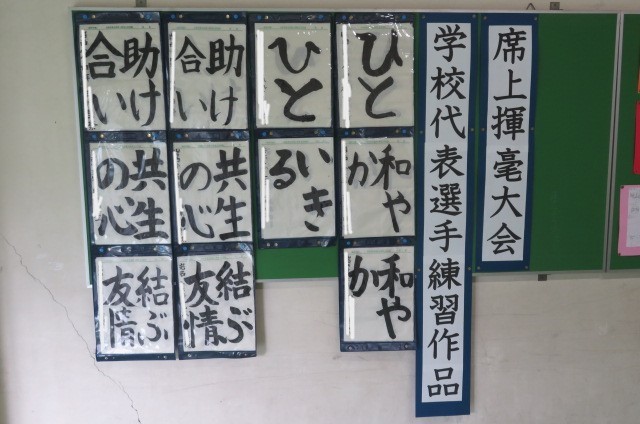 席上揮毫大会
学校代表選手練習作品
ひと
ひと
助け
合い
助け
合い
和や
か
いき
る
共生
の心
共生
の心
和や
か
結ぶ
友情
結ぶ
友情